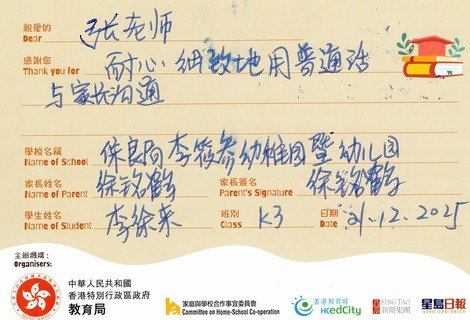 親愛的 张老师
Dear
感謝您 耐心细致地用普通话
Thank you for
与家长沟通
學校名稱 保良局李筱参幼稚园暨幼儿园
Name of School
家長姓名 徐铭鹤 家長簽名 徐铭鹤
Name of Parent Parent's Signature
學生姓名 李徐来 班別 K3 日期 21.12.2025
Name of Student Class Date
主辦機構:
Organisers:
中華人民共和國
香港特別行政區政府
教育局
家庭與學校合作事宜委員會
Committee on Home-School Co-operation
香港教育城
HKedCity
星島 SING TAO
新聞集團
星島日報